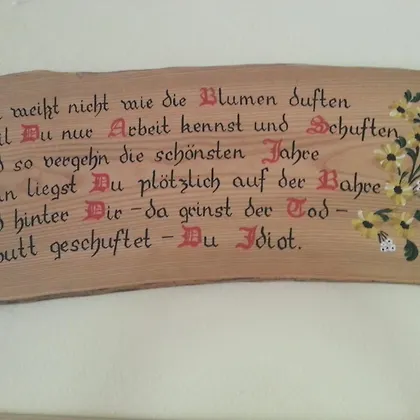 weißt nicht wie die Blumen duften
Du nur Arbeit kennst und Schuften
so vergehn die schönsten Jahre
liegst Du plötzlich auf der Bahre
hinter Dir - da grinst der Tod -
geschuftet - Du Idiot.